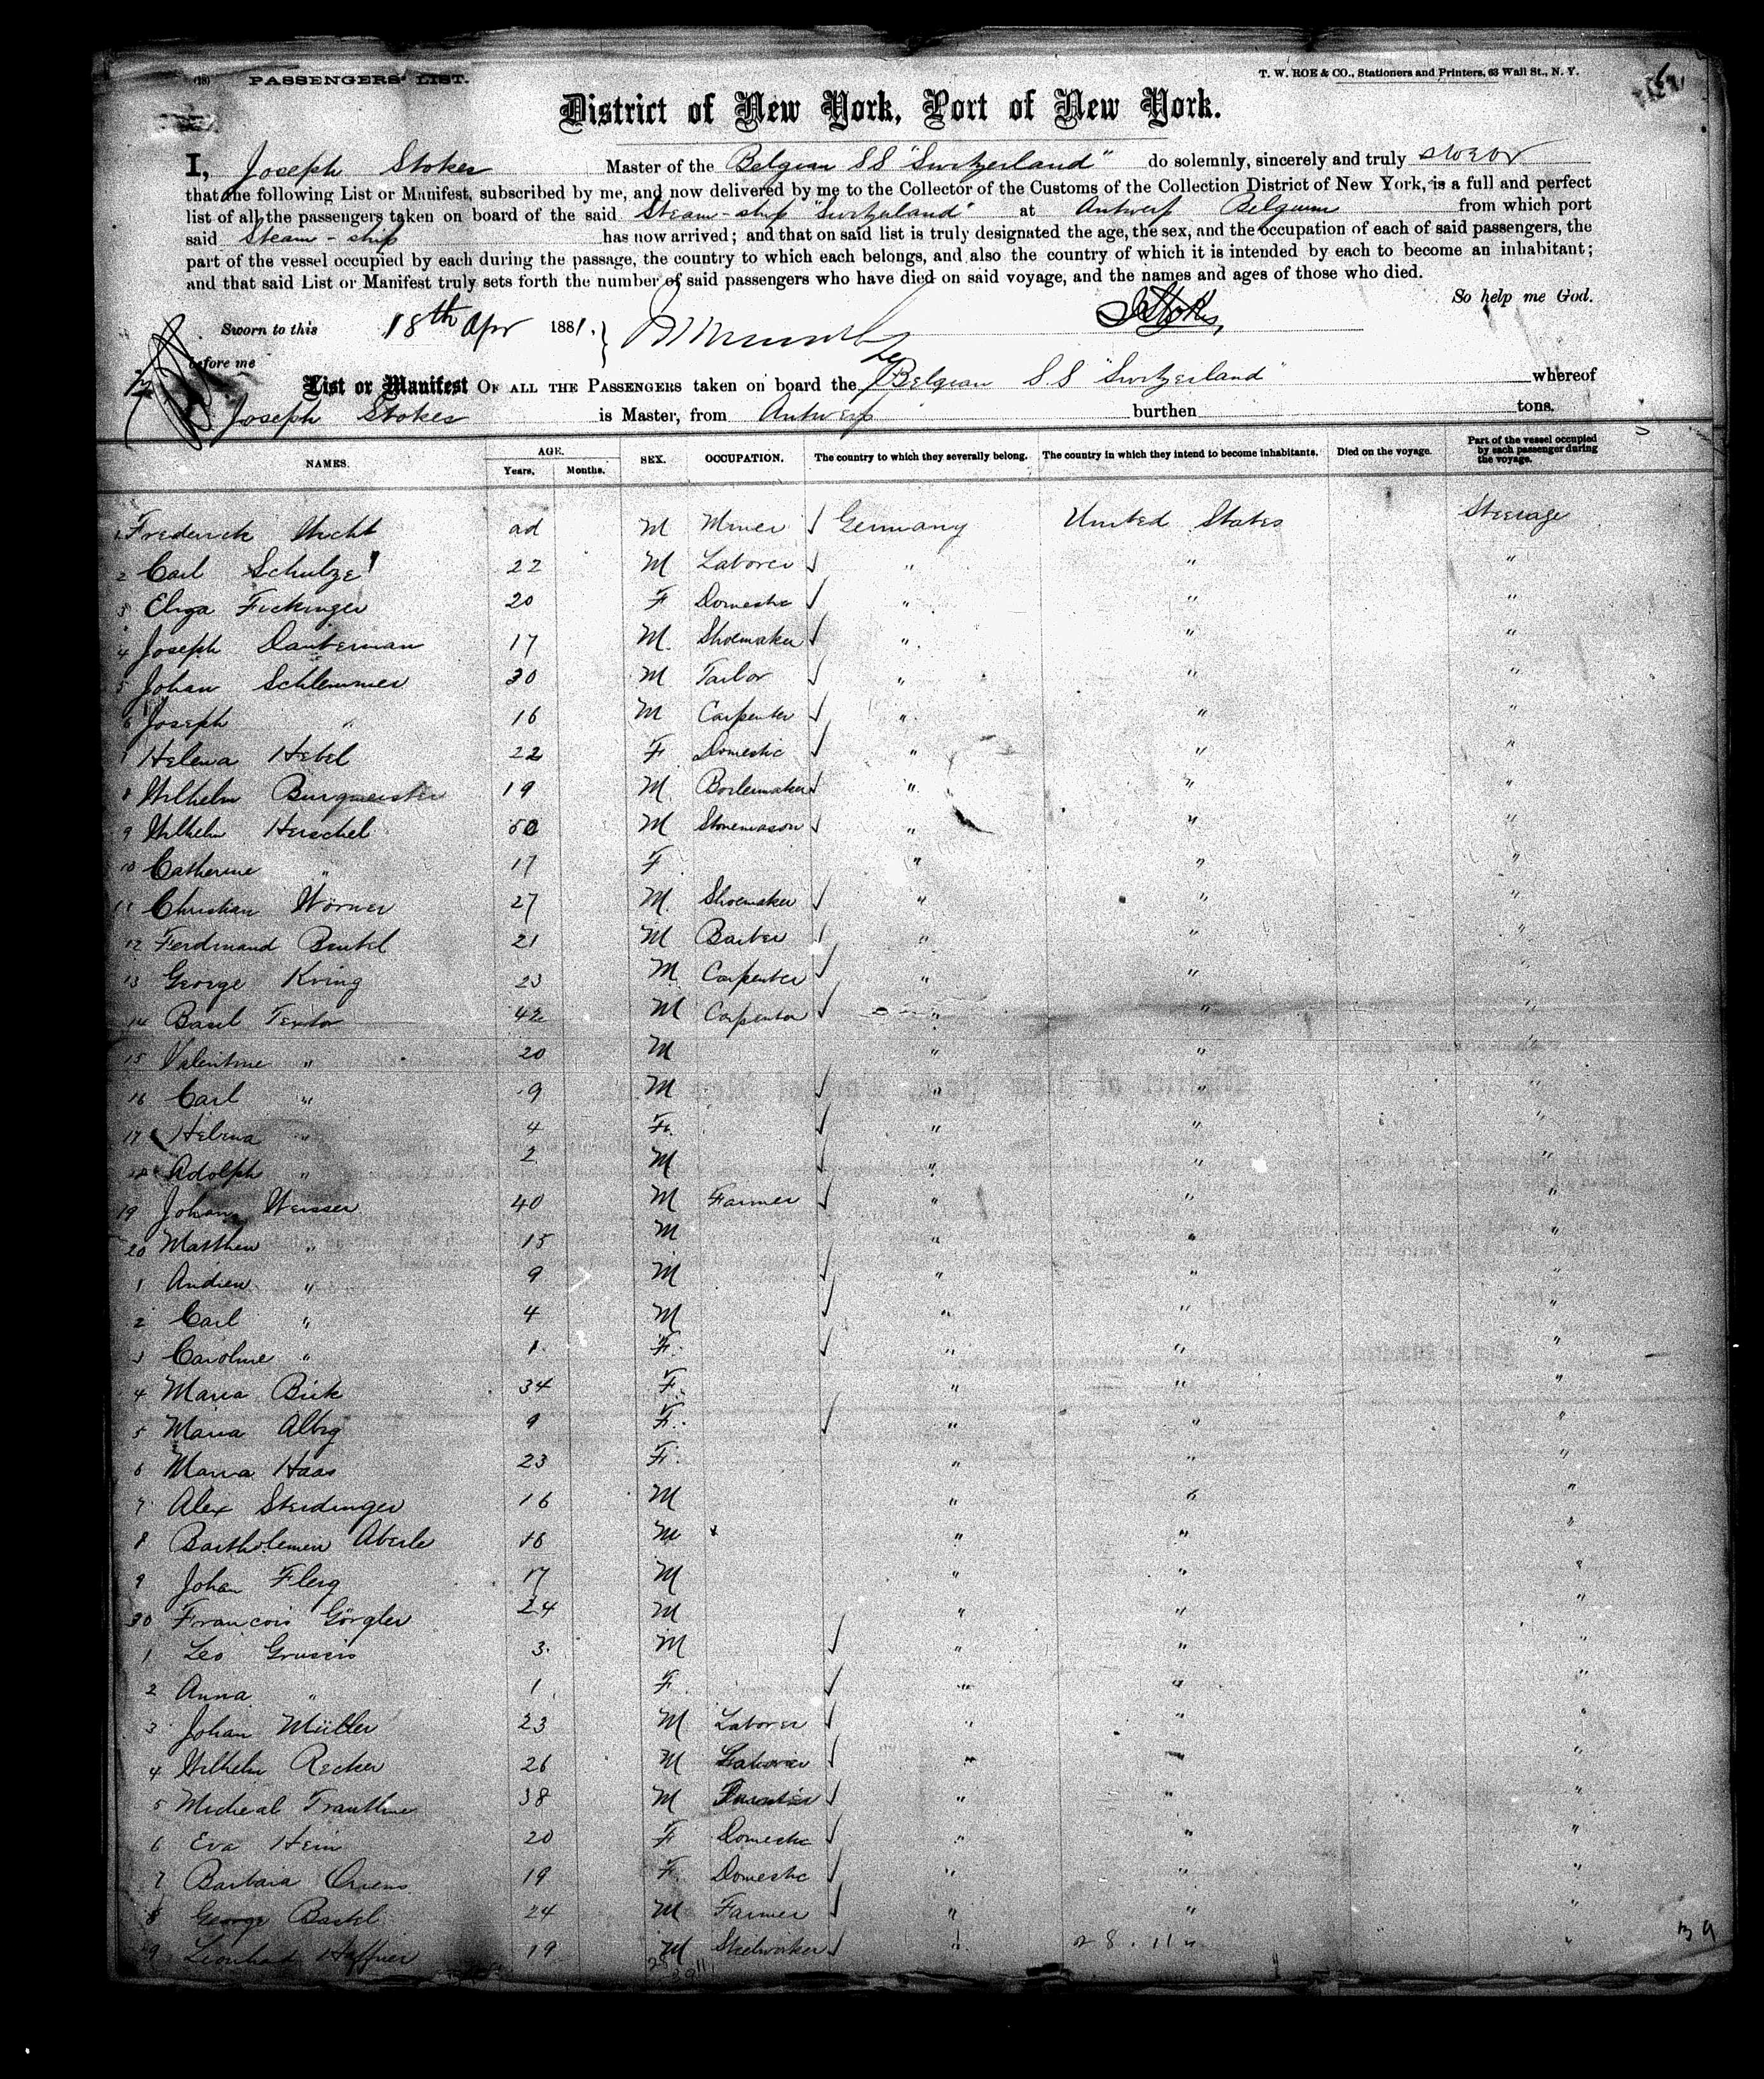 (18) PASSENGERS' LIST. T. W. ROE & CO., Stationers and Printers, 63 Wall St., N. Y.
District of New York, Port of New York.
I, Joseph Stokes Master of the Belgian SS "Switzerland" do solemnly, sincerely and truly swear
that the following List or Manifest, subscribed by me, and now delivered by me to the Collector of the Customs of the Collection District of New York, is a full and perfect
list of all the passengers taken on board of the said Steam-ship "Switzerland" at Antwerp Belgium from which port
said Steam-ship has now arrived; and that on said list is truly designated the age, the sex, and the occupation of each of said passengers, the
part of the vessel occupied by each during the passage, the country to which each belongs, and also the country of which it is intended by each to become an inhabitant;
and that said List or Manifest truly sets forth the number of said passengers who have died on said voyage, and the names and ages of those who died.
So help me God.
Sworn to this 18th Apr 1881. JStokes,
before me
List or Manifest OF ALL THE PASSENGERS taken on board the Belgian S.S "Switzerland" whereof
Joseph Stokes is Master, from Antwerp burthen tons.
NAMES. AGE. Years. Months. SEX. OCCUPATION. The country to which they severally belong. The country in which they intend to become inhabitants. Died on the voyage. Part of the vessel occupied by each passenger during the voyage.
1 Frederick ad M Miner Germany United States Steerage
2 Carl Schulze 22 M Laborer " " "
3 Eliza Fickinger 20 F Domestic " " "
4 Joseph Dauberman 17 M. Shoemaker " " "
5 Johan Schlemmer 30 M Tailor " " "
6 Joseph " 16 M Carpenter " " "
7 Helena Hebel 22 F Domestic " " "
8 Wilhelm Burgmeister 19 M. Boilermaker " " "
9 Wilhelm Herschel 50 M Stonemason " " "
10 Catherine " 17 F " " "
11 Christian Wörner 27 M. Shoemaker " " "
12 Ferdinand Beutel 21 M Barber " " "
13 George Kring 23 M Carpenter " " "
14 Basil Textor 42 M Carpenter " " "
15 Valentine " 20 M " " "
16 Carl " 9 M " " "
17 Helena " 4 F. " " "
18 Adolph " 2 M " " "
19 Johan Weisser 40 M Farmer " " "
20 Matthew " 15 M " " "
1 Andrew " 9 M " " "
2 Carl " 4 M " " "
3 Caroline " 1 F. " " "
4 Maria Bick 34 F. " " "
5 Maria 9 F. " " "
6 Maria Haas 23 F. " " "
7 Alex Steidinger 16 M " " "
8 Bartholemew Aberle 16 M " " "
9 Johan Fleig 17 M " " "
30 Francois Görgler 24 M " " "
1 Leo 3 M " " "
2 Anna " 1 F. " " "
3 Johan Müller 23 M Laborer " " "
4 Wilhelm Recker 26 M Laborer " " "
5 Micheal 38 M " " "
6 Eva Hein 20 F Domestic " " "
7 Barbara 19 F. Domestic " " "
8 George Bastel 24 M Farmer " " "
9 Leonhad Haffner 19 M Steelworker " "
39